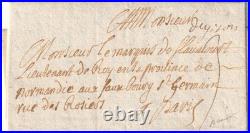 A Monsieur
Monsieur le marquis de
Lieutenant de Roy en la province de
normandie aux faux bourg St Germain
rue des Rosiers
a Paris